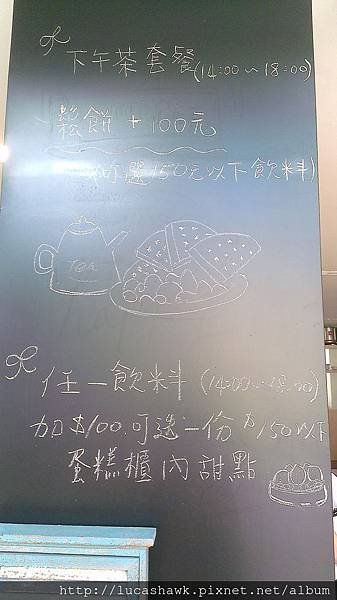 下午茶套餐(14:00~18:00)
鬆餅 + 100元
可選150元以下飲料)
TEA
任一飲料 (14:00~18:00)
加$100可選一份$150以下
蛋糕櫃內甜點
http://lucashawk.pixnet.net/album